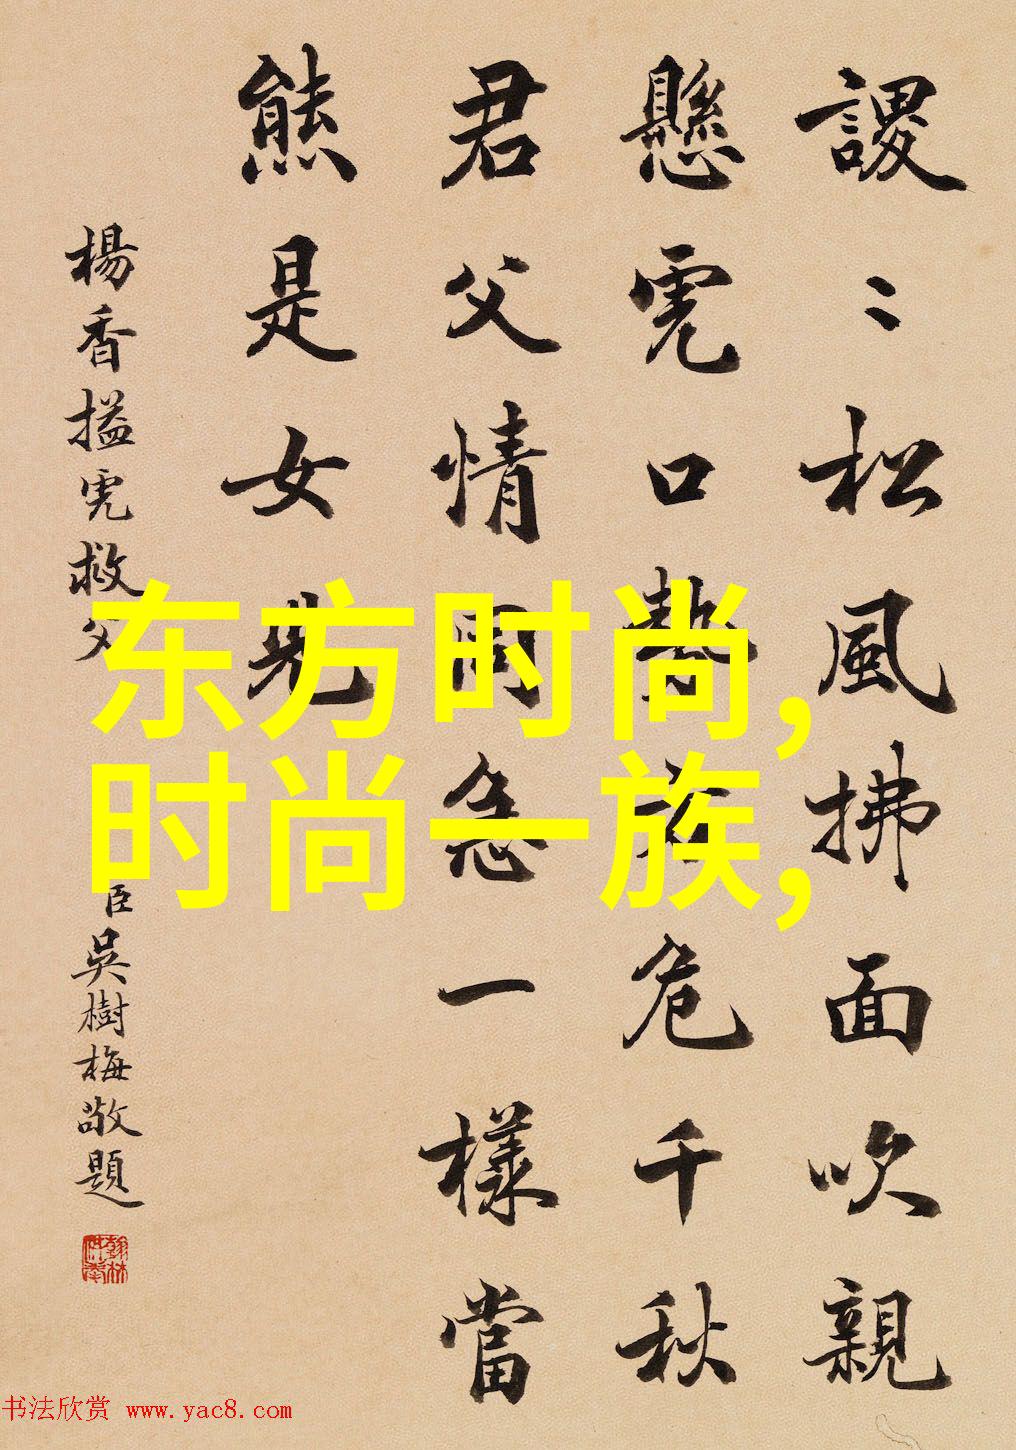 謖〻松風拂面吹親
懸虎口勢危千秋
君父情同急一樣當
熊是女兒
楊香搤虎救父
臣吳樹梅敬題
翰林供奉
东方时尚,
时尚一族,
书法欣赏 www.yac8.com